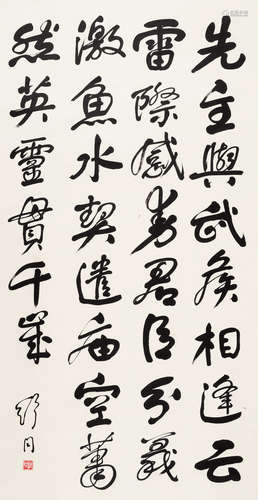 先主與武侯相逢云
雷際感通君臣分義
激魚水契遺庙空蕭
然英靈貫千歲
舒同